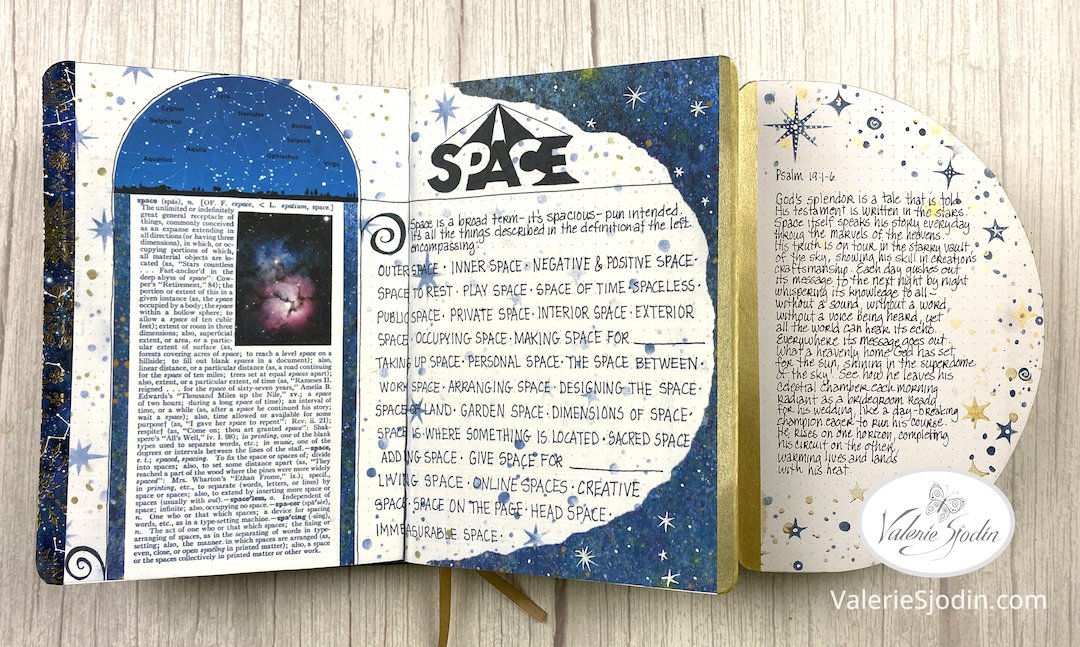 Cygnus
Delphinus
Hercules
Bootes
Serpens
Aquila
Aquarius
Ophiuchus
Virgo
space (spās), n. [OF. F. espace, < L. spatium, space.]
The unlimited or indefinitely
great general receptacle of
things, commonly conceived
as an expanse extending in
all directions (or having three
dimensions), in which, or oc-
cupying portions of which,
all material objects are lo-
cated (as, "Stars countless
. . . Fast-anchor'd in the
deep abyss of space": Cow-
per's "Retirement," 84); the
portion or extent of this in a
given instance (as, the space
occupied by a body; the space
within a hollow sphere; to
allow a space of ten cubic
feet); extent or room in three
dimensions; also, superficial
extent, or area, or a partic-
ular extent of surface (as,
forests covering acres of space; to reach a level space on a
hillside; to fill out blank spaces in a document); also,
linear distance, or a particular distance (as, a road continuing
for the space of ten miles; trees set at equal spaces apart);
also, extent, or a particular extent, of time (as, "Rameses II.
reigned . . . for the space of sixty-seven years," Amelia B.
Edwards's "Thousand Miles up the Nile," xv.; a space
of two hours; during a long space of time); an interval of
time, or a while (as, after a space he continued his story;
wait a space); also, time allowed or available for some
purpose† (as, "I gave her space to repent": Rev. ii. 21);
respite† (as, "Come on; thou art granted space": Shak-
spere's "All's Well," iv. 1. 98); in printing, one of the blank
types used to separate words, etc.; in music, one of the
degrees or intervals between the lines of the staff.—space,
v. t.; spaced, spacing. To fix the space or spaces of; divide
into spaces; also, to set some distance apart (as, "They
reached a part of the wood where the pines were more widely
spaced": Mrs. Wharton's "Ethan Frome," ix.); specif.,
in printing, etc., to separate (words, letters, or lines) by
space or spaces; also, to extend by inserting more space or
spaces (usually with out).—space'less, a. Independent of
space; infinite; also, occupying no space.—spa-cer (spā'sėr),
n. One who or that which spaces; a device for spacing
words, etc., as in a type-setting machine.—spa'cing (-sing),
n. The act of one who or that which spaces; the fixing or
arranging of spaces, as in the separating of words in type-
setting; also, the manner in which spaces are arranged (as,
even, close, or open spacing in printed matter); also, a space
or the spaces collectively in printed matter or other work.
SPACE
Space is a broad term - it's spacious - pun intended.
It's all the things described in the definition at the left
encompassing:
OUTER SPACE · INNER SPACE · NEGATIVE & POSITIVE SPACE ·
SPACE TO REST · PLAY SPACE · SPACE OF TIME · SPACELESS ·
PUBLIC SPACE · PRIVATE SPACE · INTERIOR SPACE · EXTERIOR
SPACE · OCCUPYING SPACE · MAKING SPACE FOR ________
TAKING UP SPACE · PERSONAL SPACE · THE SPACE BETWEEN ·
WORK SPACE · ARRANGING SPACE · DESIGNING THE SPACE ·
SPACE OF LAND · GARDEN SPACE · DIMENSIONS OF SPACE ·
SPACE IS WHERE SOMETHING IS LOCATED · SACRED SPACE
ADDING SPACE · GIVE SPACE FOR ________
LIVING SPACE · ONLINE SPACES · CREATIVE
SPACE · SPACE ON THE PAGE · HEAD SPACE ·
IMMEASURABLE SPACE ·
Psalm 19:1-6
God's splendor is a tale that is told
His testament is written in the stars
Space itself speaks his story everyday
throug the marvels of the heavens
His truth is on tour in the starry vault
of the sky, showing his skill in creations
craftsmanship. Each day gushes out
its message to the next night by night
whispering its knowledge to all -
without a sound, without a word,
without a voice being heard, yet
all the world can hear its echo.
Everywhere its message goes out.
What a heavenly home God has set
for the sun, shining in the superdome
of the sky! See how he leaves his
celestial chamber each morning
Radiant as a bridegroom ready
for his wedding, like a day-breaking
champion eager to run his course.
He rises on one horizon, completing
his circuit on the other,
warming lives and lands
with his heat.
Valerie Sjodin
ValerieSjodin.com